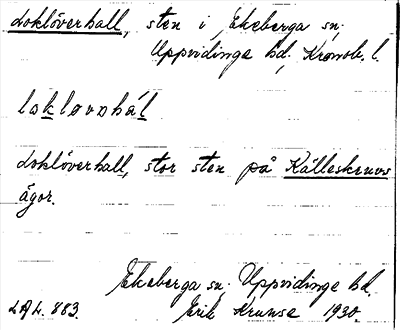 Loklöverhall, sten i Ekeberga sn;
Uppvidinge hd. Kronob. l.
lokløvəhál
Loklöverhall, stor sten på Källeskruvs
ägor.
Ekeberga sn; Uppvidinge hd.
LAL. 883. Erik Krunse 1930.